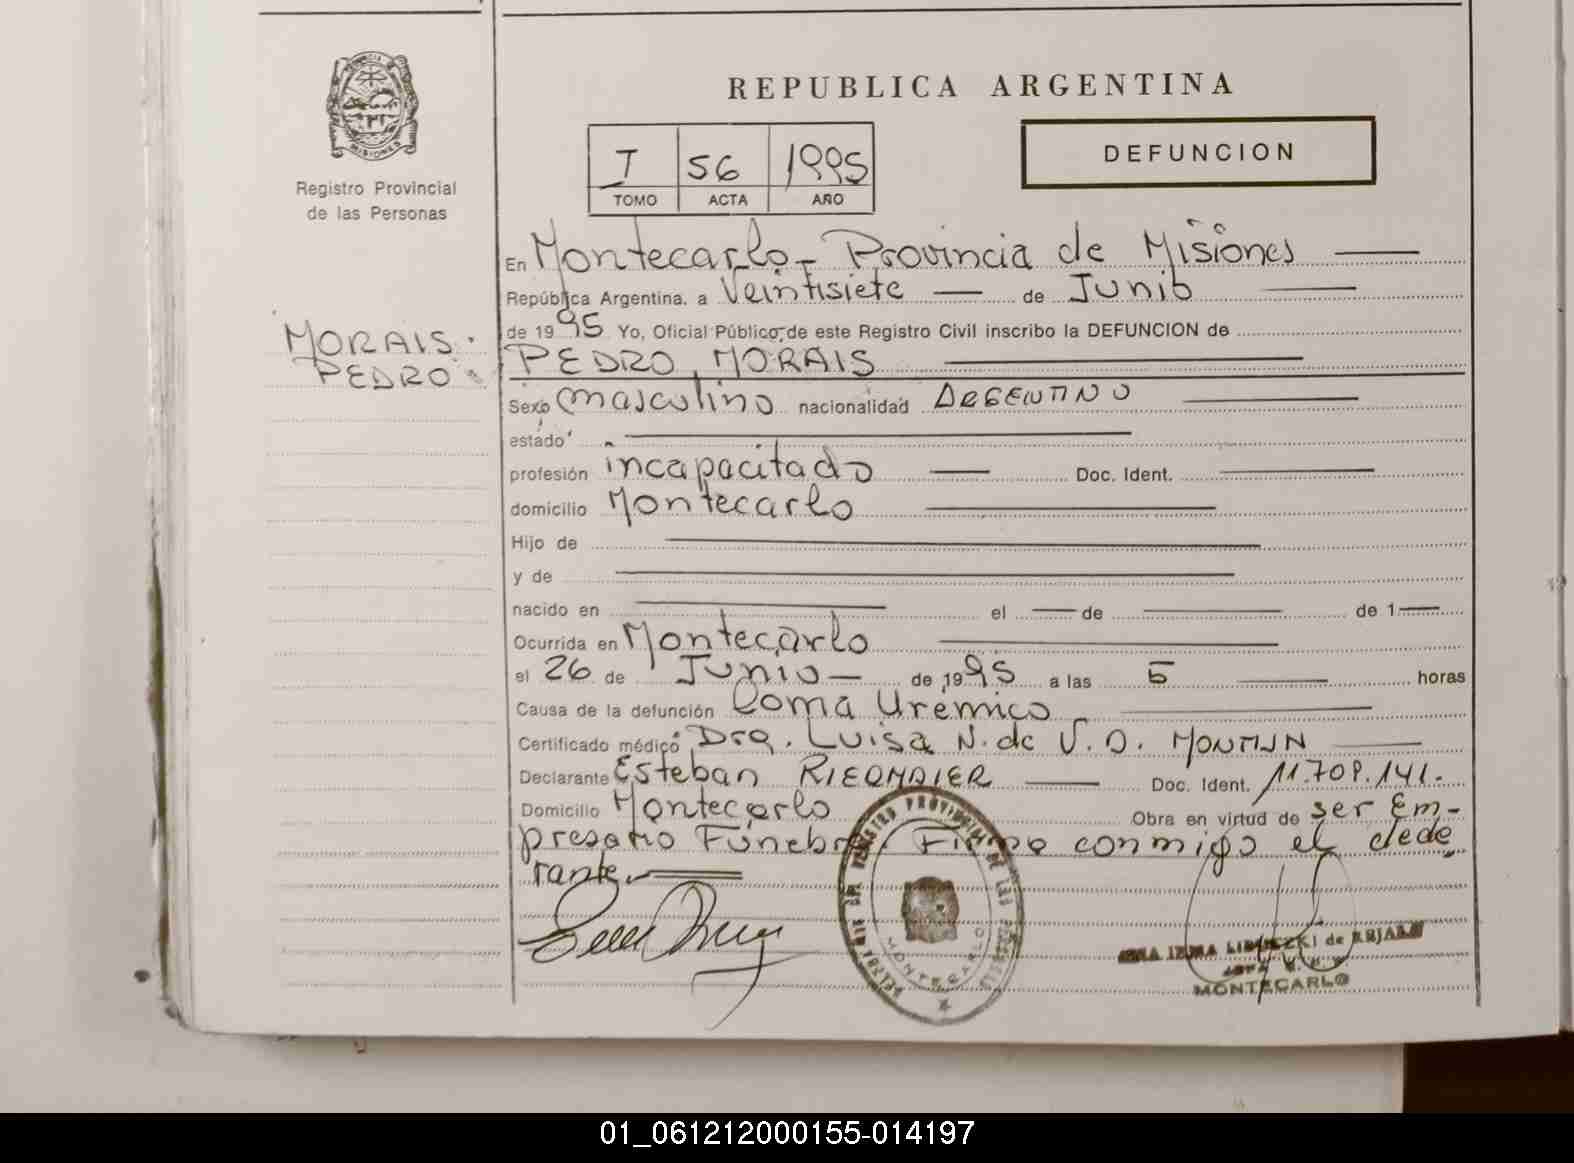 PROVINCIA
MISIONES
Registro Provincial
de las Personas
REPUBLICA ARGENTINA
I 56 1995
TOMO ACTA AÑO
DEFUNCION
En Montecarlo - Provincia de Misiones
República Argentina. a Veintisiete de Junio
MORAIS.
PEDRO
de 1995 Yo, Oficial Público de este Registro Civil inscribo la DEFUNCION de
PEDRO MORAIS
Sexo masculino nacionalidad ARGENTINO
estado
profesión incapacitado Doc. Ident.
domicilio Montecarlo
Hijo de
y de
nacido en el de de 1
Ocurrida en Montecarlo
el 26 de Junio de 1995 a las 5 horas
Causa de la defunción Coma Uremico
Certificado médico Dra. Luisa N. de V. D. MONTIJN
Declarante Esteban RIEDMAIER Doc. Ident. 11.709.141.
Domicilio Montecarlo Obra en virtud de ser Em-
presario Fúnebre. Firma conmigo el decla
rante
REGISTRO PROVINCIAL DE LAS PERSONAS
MONTECARLO
IRMA de
MONTECARLO
01_061212000155-014197